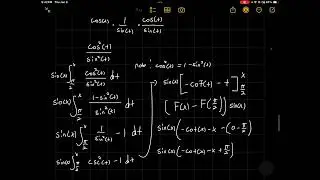 cos(t) · 1/sin(t) · cos(t)/sin(t)
cos²(t)/sin²(t)
note: cos²(t) = 1 - sin²(t)
sin(x) ∫_{π/2}^{x} cos²(t)/sin²(t) dt
sin(x) ∫_{π/2}^{x} (1 - sin²(t))/sin²(t) dt
sin(x) ∫_{π/2}^{x} 1/sin²(t) - 1 dt
sin(x) ∫_{π/2}^{x} csc²(t) - 1 dt
sin(x) [-cot(t) - t]_{π/2}^{x}
[F(x) - F(π/2)] sin(x)
sin(x) (-cot(x) - x - (0 - π/2)
sin(x) (-cot(x) - x + π/2)